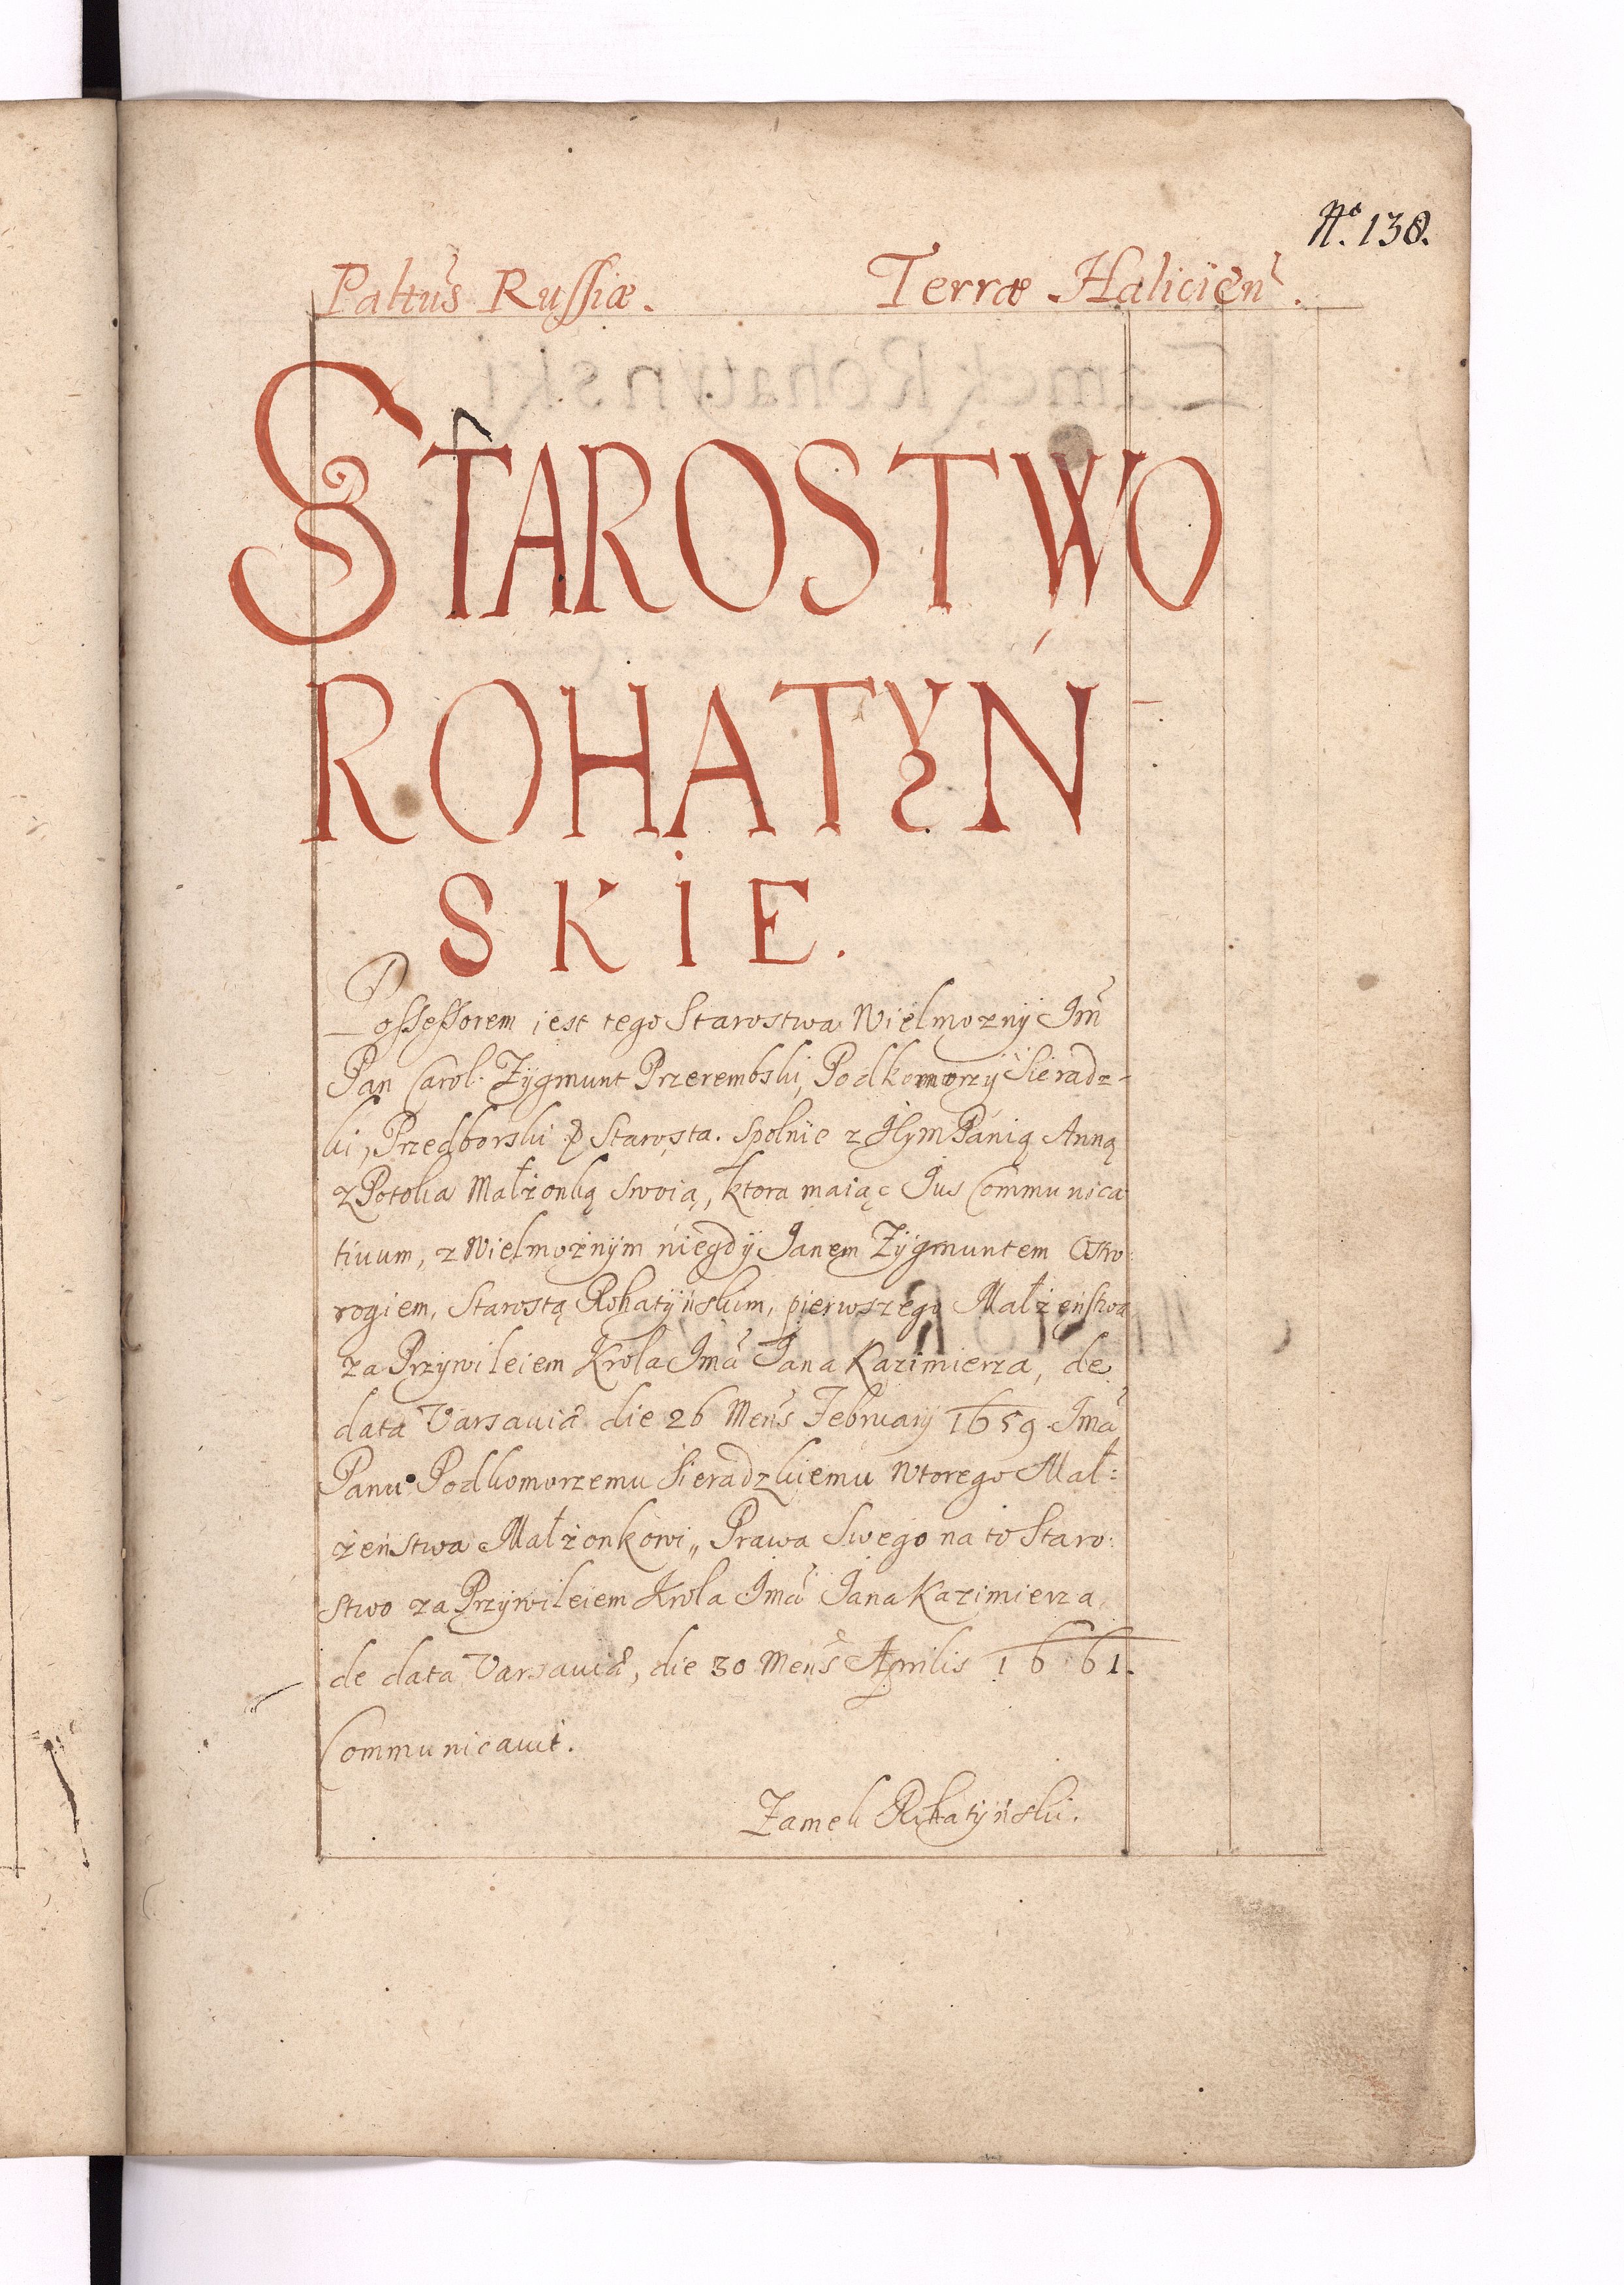 No. 138.
Paltus Russiæ. Terræ Halicien.
STAROSTWO
ROHATYŃ
SKIE.
Possessorem iest tego Starostwa Wielmozny Im
Pan Carol. Zÿgmunt Przerembski, Podkomorzÿ Sieradz-
ki, Przedborski Starosta. spolnie z Panią Anną
z Potoka Małżonką swoią, ktora maiąc Jus Communica
tiuum, z Wielmożnÿm niegdÿ Janem Zÿgmuntem Ostro:
rogiem, Starostą Rohatÿńskim, pierwszego Małżeństwa
za Przÿwileiem Krola Jmā Jana Kazimierza, de
data Varsauiæ die 26 Mens Februarij 1659 Jmā
Panu Podkomorzemu Sieradzkiemu Wtorego Mał:
żeństwa Małżonkowi, Prawa Swego na to Staro:
stwo za Przÿwileiem Krola Jmā Jana Kazimierza,
de data Varsauiæ, die 30 Mens Aprilis 1661.
Communicauit.
Zamek Rohatÿński.